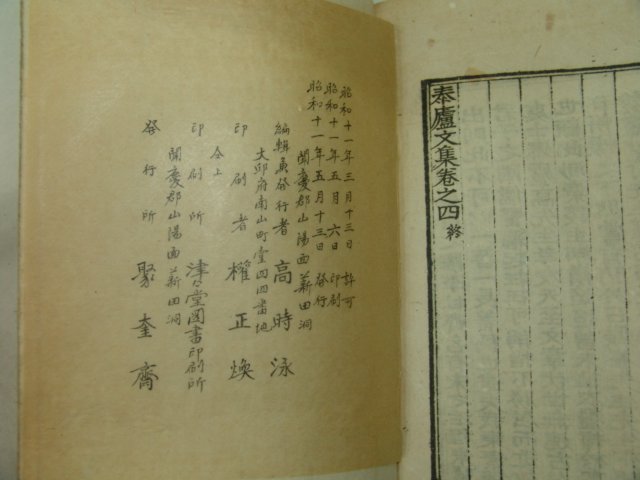 泰廬文集卷之四 終
昭和十一年三月十三日 許可
昭和十一年五月六日 印刷
昭和十一年五月十三日 發行
聞慶郡山陽面薪田洞
編輯兼發行者 高時泳
大邱府南山町壹四四番地
印刷者 權正煥
仝上
印刷所 津々堂図書印刷所
聞慶郡山陽面薪田洞
發行所 聚奎齋